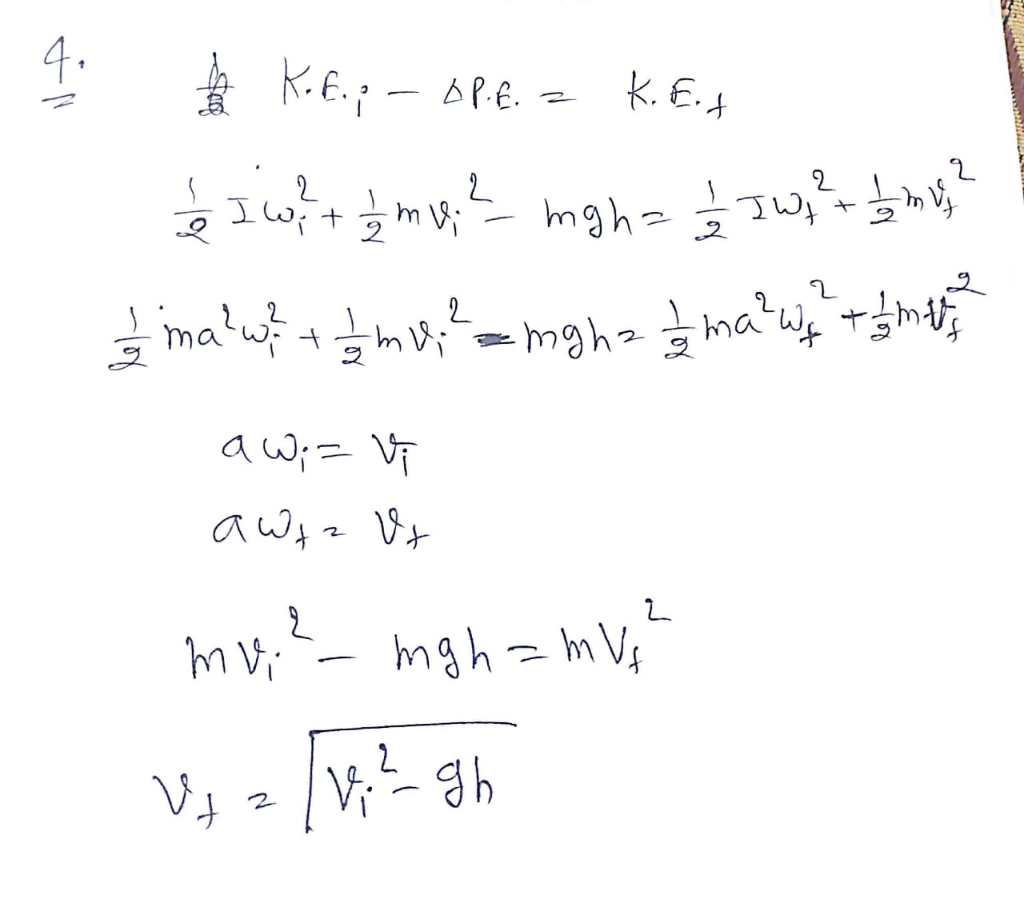 4.
K.E.i – ΔP.E. = K.E.f
1/2 Iωi² + 1/2 mvi² – mgh = 1/2 Iωf² + 1/2 mvf²
1/2 ma²ωi² + 1/2 mvi² – mgh = 1/2 ma²ωf² + 1/2 mvf²
aωi = vi
aωf = vf
mvi² – mgh = mvf²
vf = √(vi² – gh)